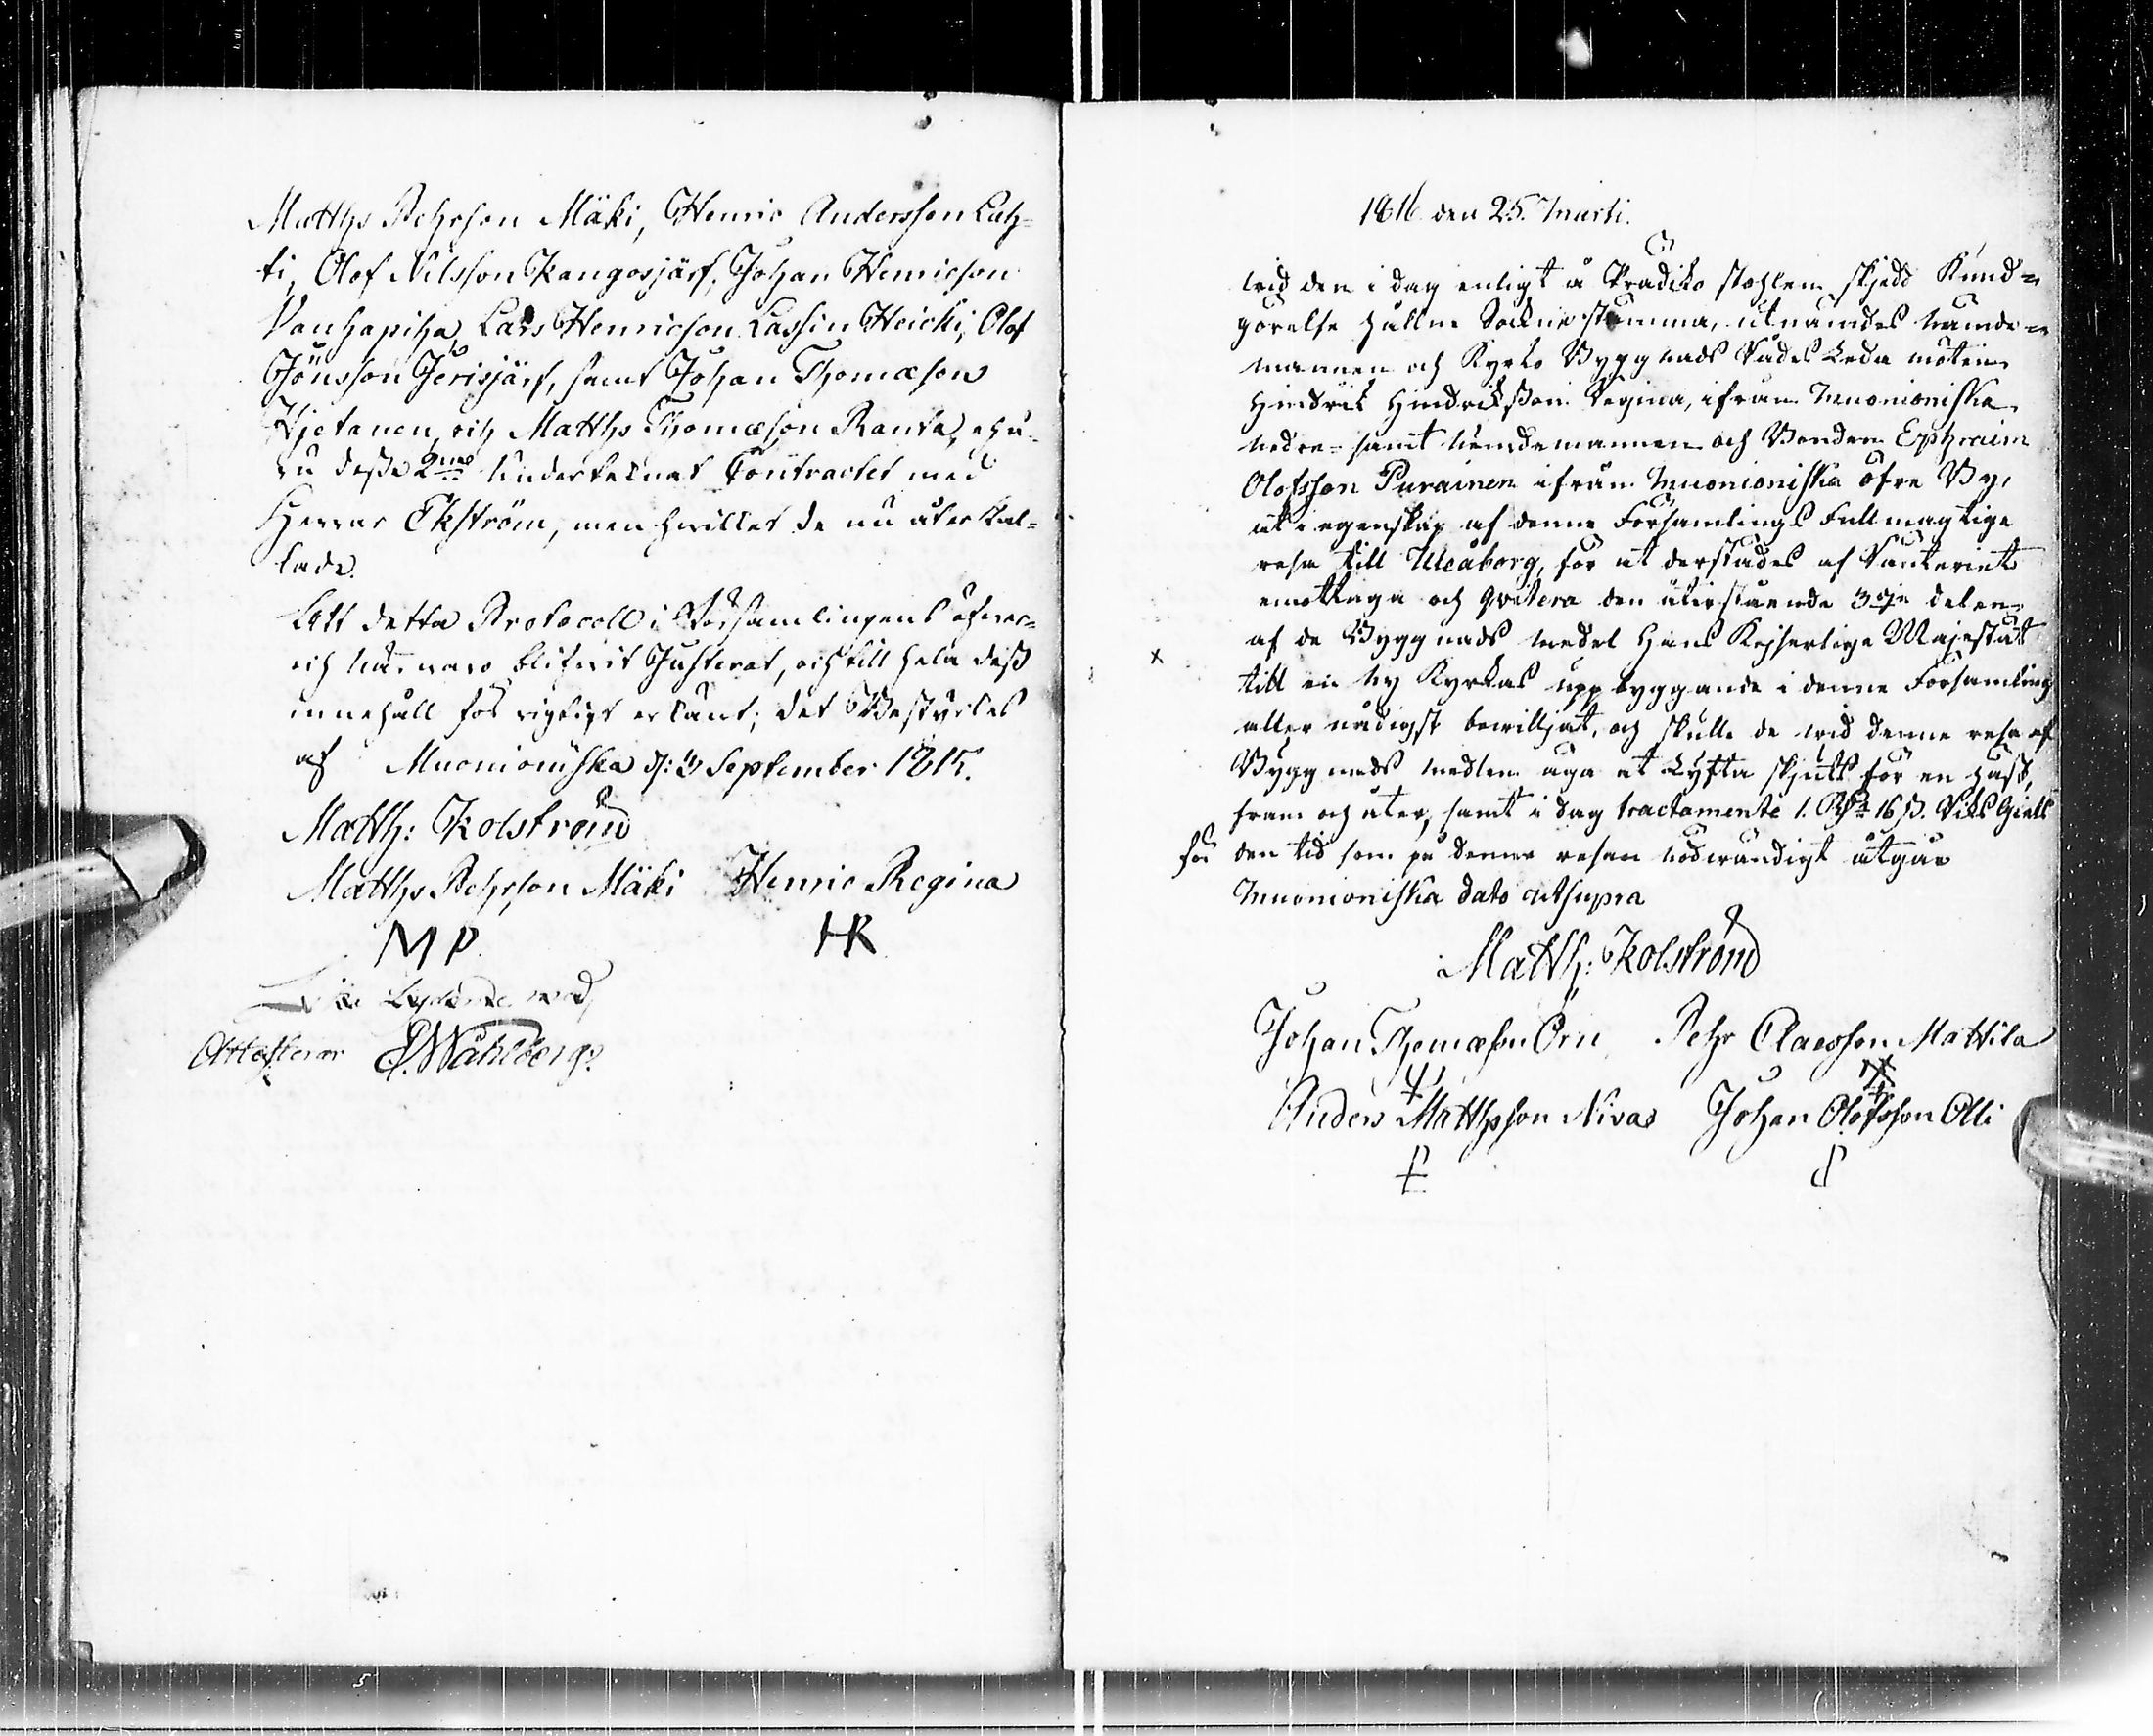 Matths Pehrson Mäki, Henric Andersson Lah=
ti, Olof Nilsson Kangosjärf, Johan Henricson
Vanhapiha, Lars Henricson Lassin Heicki, Olof
Jönsson Jerisjärf, samt Johan Thomæson
Kjetanen, och Matths Thomæson Ranta, ehu-
ru desse 2ne Undertecknat Contractet med
Herrar Ekström, men hvilket de nu återkal=
lade.
Att detta Protocoll i Församlingens öfver=
och närvaro blifvit Justerat, och till hela dess
innehåll för rigtigt erkänt; det Bestyrkes
af Muonioniska d: 3 September 1815.
Matth: Kolström
Matths Pehrson Mäki Henric Regina
M P. HR
Lika Lydande med,
Attesterar Wahlberg.
1816 den 25. Martii.
wid den i dag enligt å Prediko stohlen skjedd Kund=
görelse hållne Sockne stämma, utnämdes Nämde=
mannen och Kyrko Byggnads
Hindrik Hindriksson Regina, ifrån Muonioniska
nedre= samt Nämdemannen och Bonden Ephraim
Olofsson Purainen ifrån Muonioniska öfre By,
at i egenskap af denne Församlings Fullmägtige
resa till Uleåborg, för at derstädes af Ränteriet
emottaga och qvitera den återstående 3dje delen
af de Byggnads medel Hans Kejserliga Majestät
x
till en ny Kyrkas uppbyggande i denne Församling
aller nådigst bewilljat, och skulle de wid denne resa af
Byggnads medlen äga at Lyfta skjuts för en häst,
fram och åter, samt i dag tractamente 1. Rd 16 s. Riks Gälds
för den tid som på denne resan nödwändigt åtgår
Muonioniska dato ut supra
Matth: Kolström
Johan Thomæson Örn Pehr Claesson Mattila
Anders Matthsson Nivas Johan Olofsson Olli